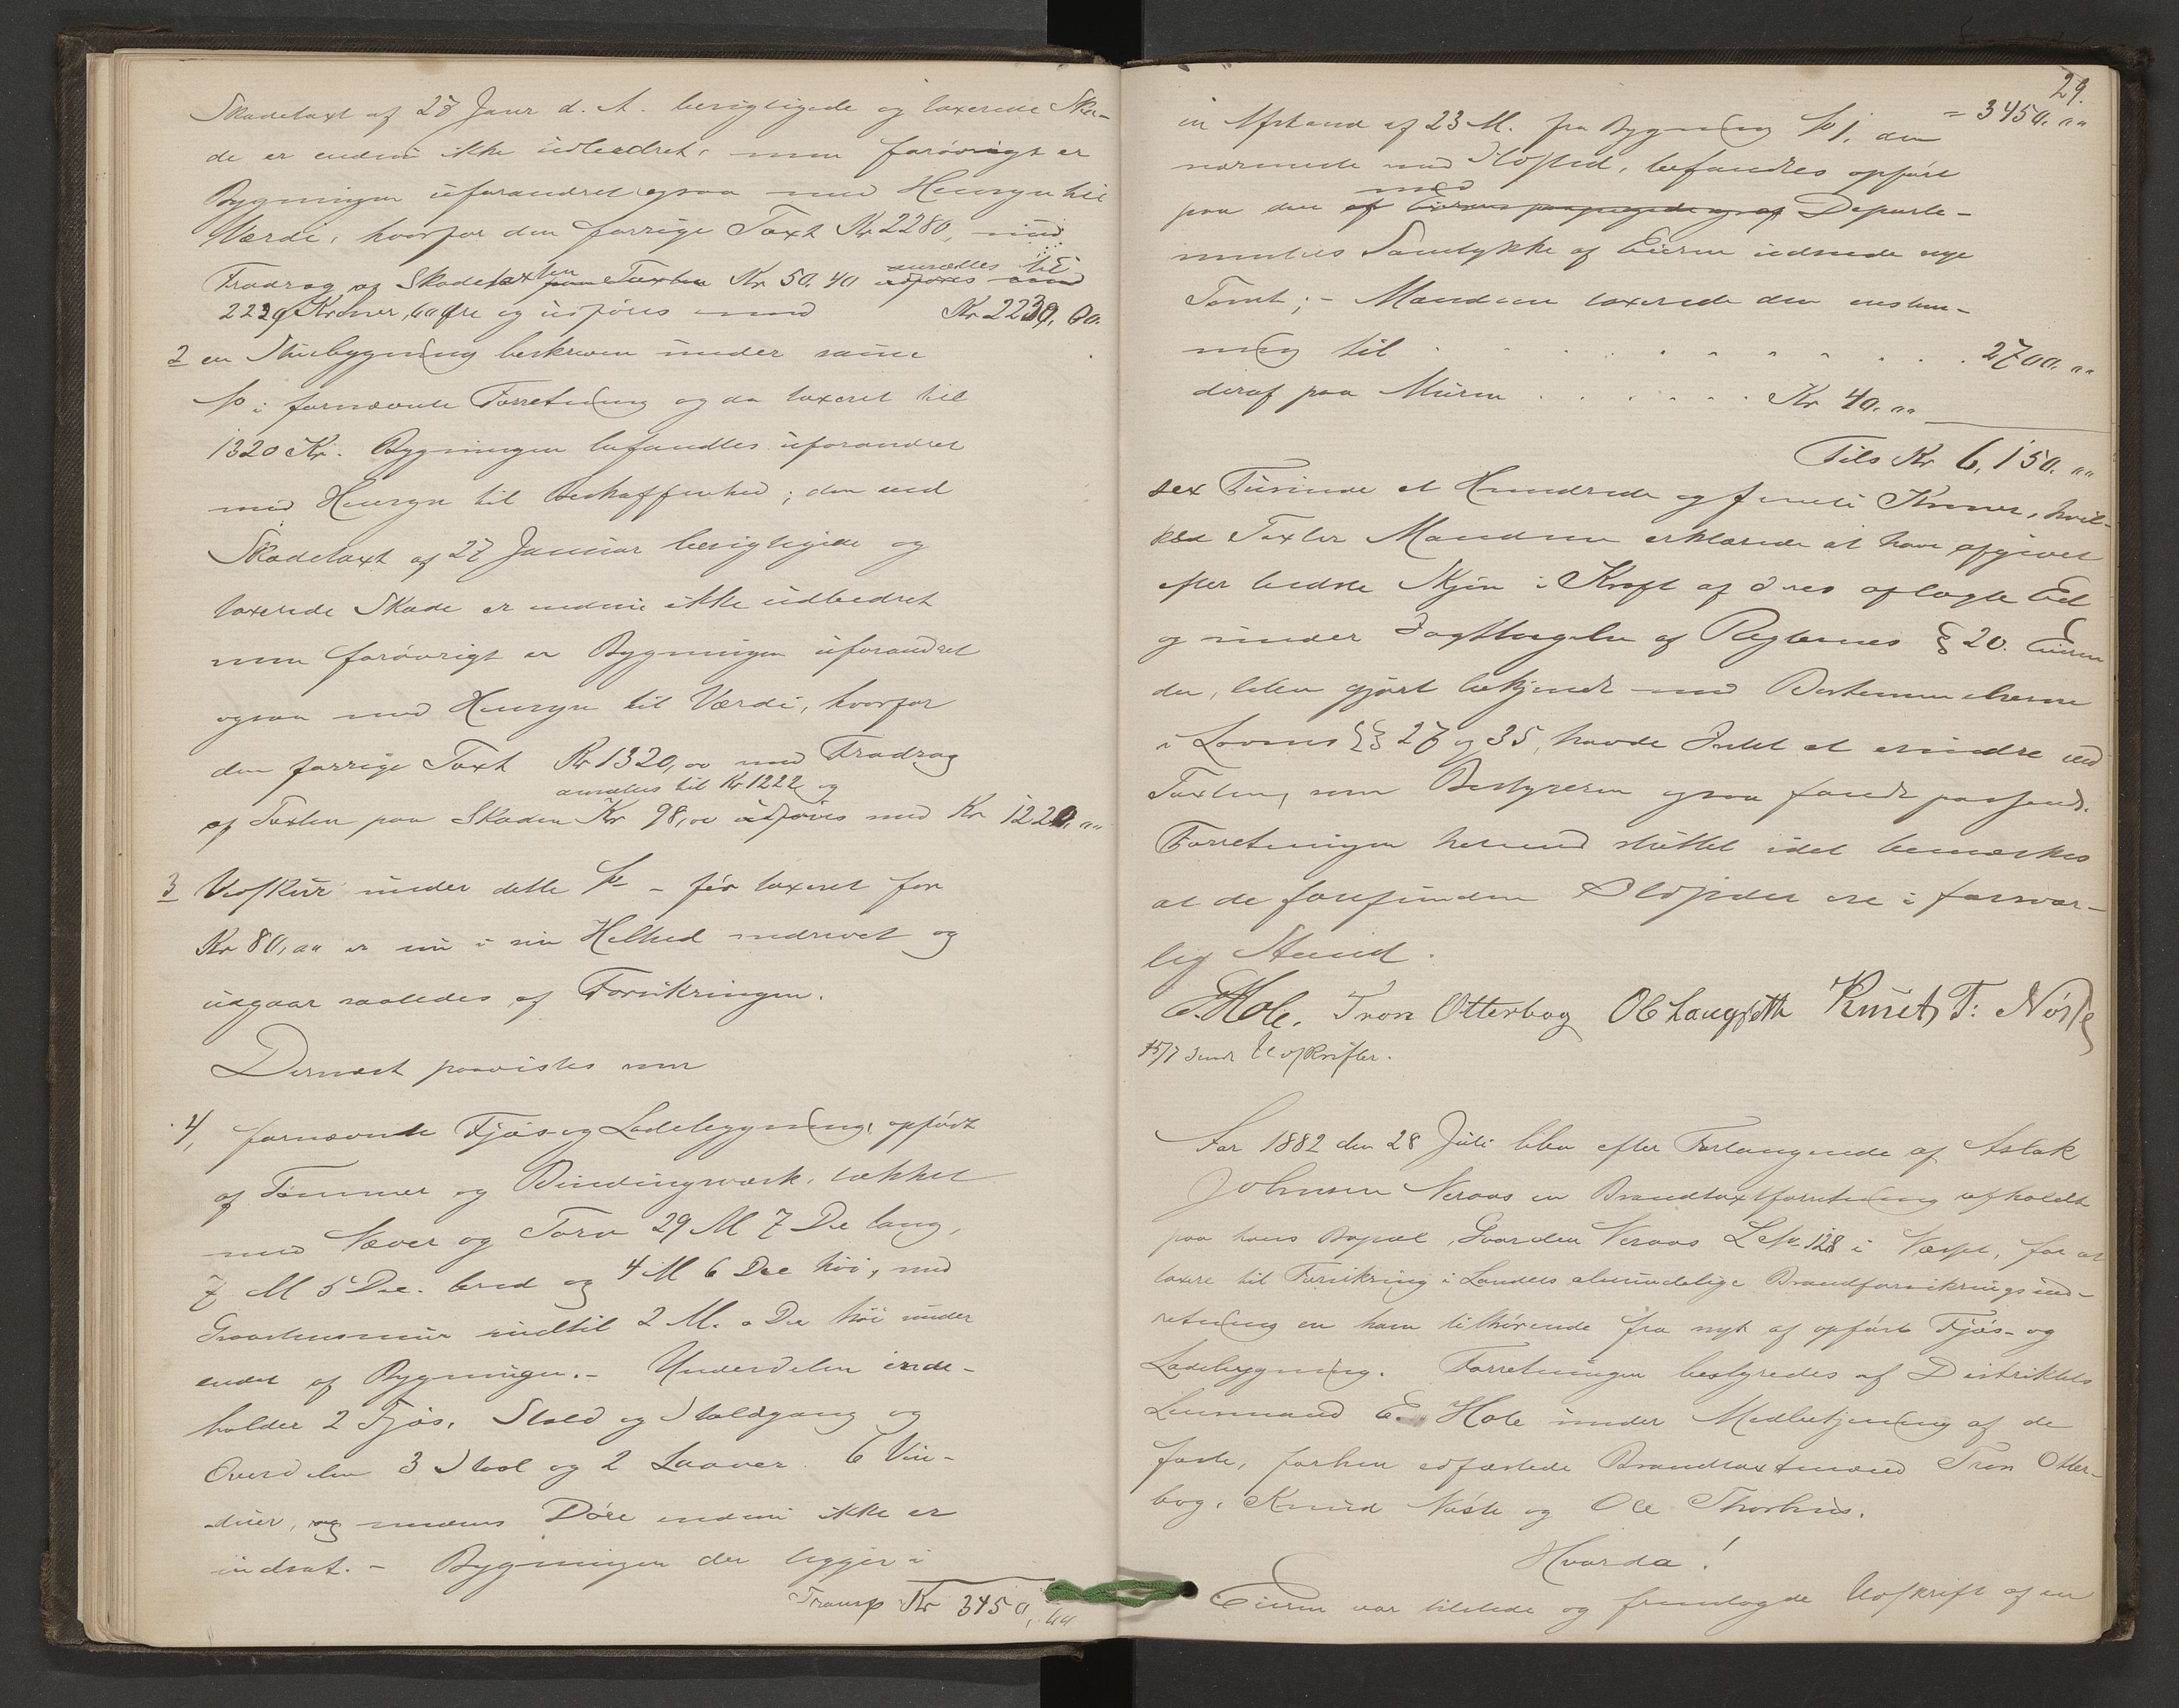 Skadetaxt af 28 Janr d. A. besigtigede og taxerede Ska-
de er endnu ikke udbedret, men forøvrigt er
Bygningen uforandret ogsaa med Hensyn til
Værdi, hvorfor den forrige Taxt Kr 2280, med
ansættes til
Fradrag af Skadetaxten Kr 50.40 udføres med
2229 Kroner, 60 Øre og udføres med Kr 2230, 00.
2 en Stuebygning beskreven under samme
No i fornævnte Forretning og da taxeret til
1320 Kr. Bygningen befandtes uforandret
med Hensyn til Beskaffenhed; den ved
Skadetaxt af 27 Januar besigtigede og
taxerede Skade er endnu ikke udbedret
men forøvrigt er Bygningen uforandret
ogsaa med Hensyn til Værdi, hvorfor
den forrige Taxt Kr 1320,00 med Fradrag
ansættes til Kr 1222 og
af Taxten paa Skaden Kr 98,00 udføres med Kr 1220,""
3 Vedskur under dette No – før taxeret for
Kr 80,00 er nu i sin Helhed nedrevet og
udgaar saaledes af Forsikringen.
Dernæst paavistes som
4, fornævnte Fjøs og Ladebygning, opført
af Tømmer og Bindingsværk, tækket
med Næver og Torv 29 M 7 De lang,
7 M 5 De. bred og 4 M 6 De høi, med
Graastensmur indtil 2 M. 0 De høi under
endel af Bygningen. – Underdelen inde-
holder 2 Fjøs, Stald og Staldgang og
Overdelen 3 Stal og 2 Laaver. 6 Vin-
duer, og endnu ikke er
indsat. – Bygningen der ligger i
Transp Kr 3450,00
29.
en Afstand af 23 M. fra Bygning No 1, den = 3450.""
nærmeste med Ildsted, befandtes opført
med
paa den af Eieren paapegede og af Departe-
mentets Samtykke af Eieren udseede nye
Tomt; – Mændene taxerede den enstem-
mig til . . . . . . . . . . 2700.""
deraf paa Muren . . . . . . Kr 40.""
Tils Kr 6,150.""
sex Tusinde et Hundrede og femti Kroner, hvil-
ken Taxter Mændene erklærede at have afgivet
efter bedste Skjøn i Kraft af deres aflagte Ed
og under Iagttagelse af Reglernes § 20. Eieren
der, bleven gjort bekjendt med Bestemmelserne
i Lovens §§ 27 og 35, havde Intet at erindre ved
Taxten, som Bestyreren ogsaa fandt passende.
Forretningen hermed sluttet idet bemærkes
at de forefundne Ildsteder ere i forsvar-
lig Stand.
E. Hole. Tron Otterbog Ol Langseth Knut T: Nørste
15/7 sendt Udskrifter.
Aar 1882 den 28 Juli blev efter Forlangende af Aslak
Johnsen Neraas en Brandtaxtforretning afholdt
paa hans Bopæl, Gaarden Neraas L No 128 i , for at
taxere til Forsikring i Landets almindelige Brandforsikringsind-
retning en ham tilhørende fra nyt af opført Fjøs- og
Ladebygning. Forretningen bestyredes af Distriktets
Lensmand E. Hole under Medbetjening af de
faste, forhen edfæstede Brandtaxtmænd Tron Otter-
bog, Knud Nørste og Ole Thorhus.
Hvorda!
Eieren var tilstede og fremlagde Udskrift af en